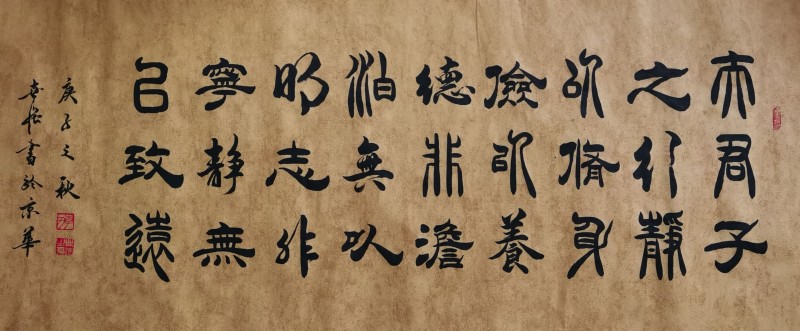 夫君子
之行靜
以脩身
儉以養
德非澹
泊無以
明志非
寧靜無
以致遠
庚子之秋
書於京華